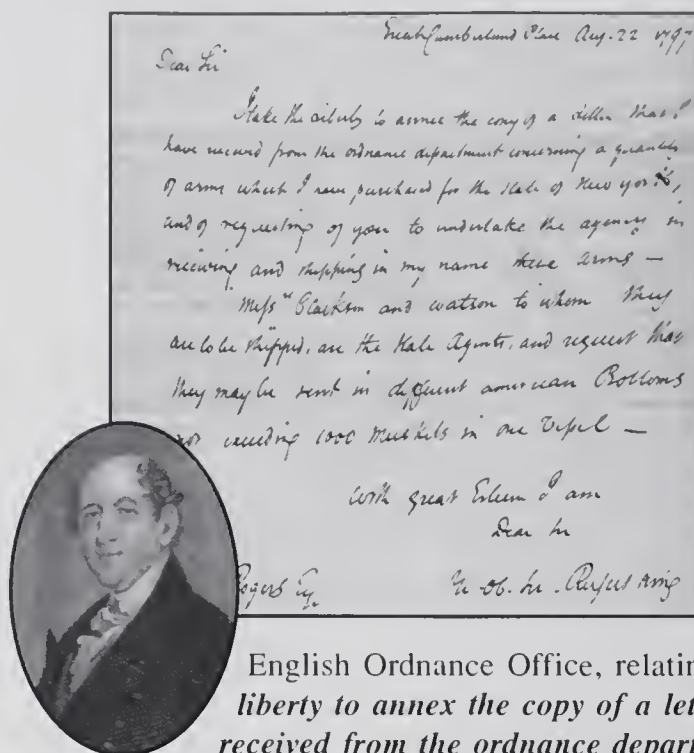 Great Cumberland Place Aug. 22 1797
Dear Sir
I take the liberty to annex the copy of a letter that I
have received from the ordnance department concerning a quantity
of arms which I have purchased for the State of New York,
and of requesting of you to undertake the agency in
receiving and shipping in my name these arms —
Messrs Clarkson and Watson to whom they
are to be shipped, are the State Agents, and request that
they may be sent in different american Bottoms
not exceeding 1000 Muskets in one Vessel —
With great Esteem I am
Dear Sir
Rogers Esq. Yr. Ob. Sr. Rufus King
English Ordnance Office, relatin
liberty to annex the copy of a let
received from the ordnance depar